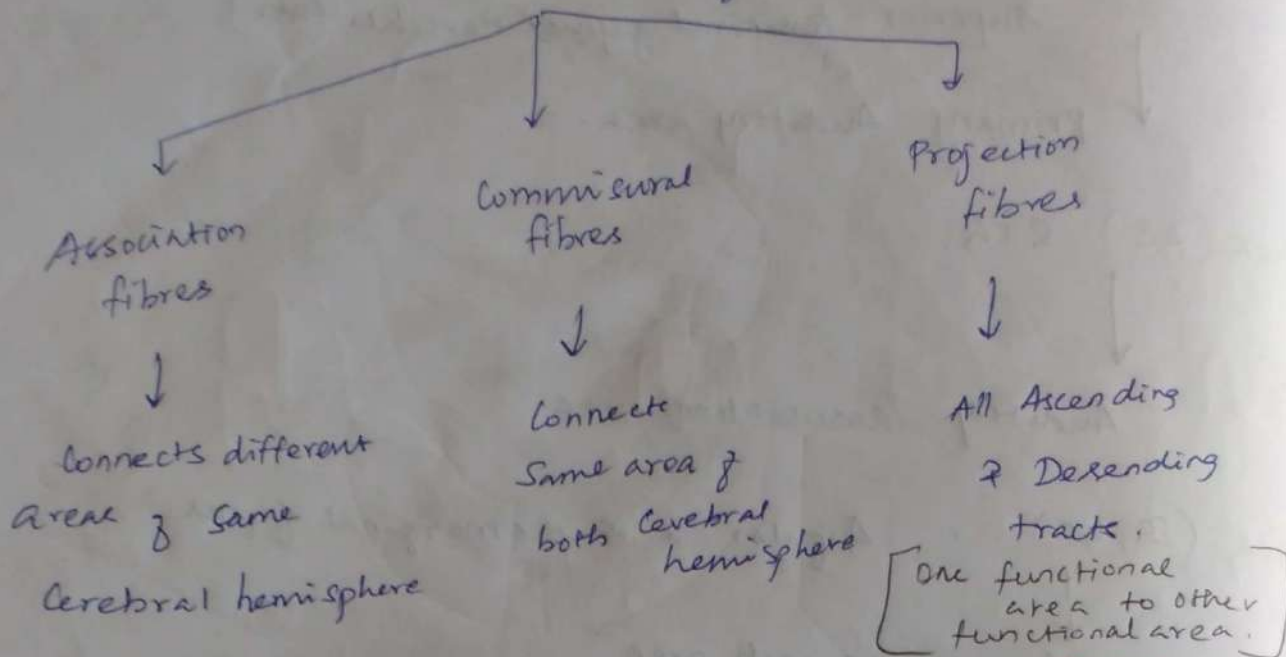 Association
fibres
Connects different
areas of same
Cerebral hemisphere
Commisural
fibres
Connects
Same area of
both Cerebral
hemisphere
Projection
fibres
All Ascending
& Desending
tracts.
[One functional
area to other
functional area.]